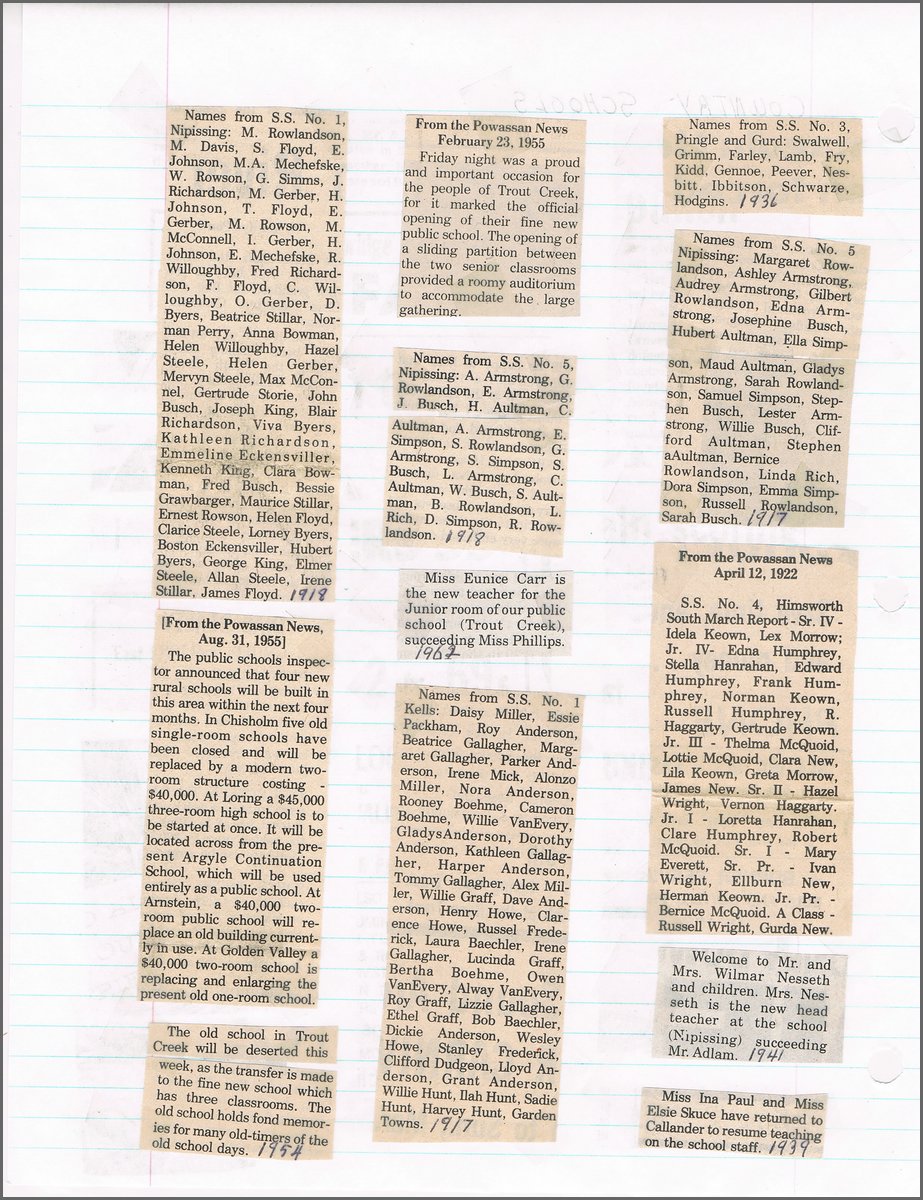 Names from S.S. No. 1,
Nipissing: M. Rowlandson,
M. Davis, S. Floyd, E.
Johnson, M.A. Mechefske,
W. Rowson, G. Simms, J.
Richardson, M. Gerber, H.
Johnson, T. Floyd, E.
Gerber, M. Rowson, M.
McConnell, I. Gerber, H.
Johnson, E. Mechefske, R.
Willoughby, Fred Richard-
son, F. Floyd, C. Wil-
loughby, O. Gerber, D.
Byers, Beatrice Stillar, Nor-
man Perry, Anna Bowman,
Helen Willoughby, Hazel
Steele, Helen Gerber,
Mervyn Steele, Max McCon-
nel, Gertrude Storie, John
Busch, Joseph King, Blair
Richardson, Viva Byers,
Kathleen Richardson,
Emmeline Eckensviller,
Kenneth King, Clara Bow-
man, Fred Busch, Bessie
Grawbarger, Maurice Stillar,
Ernest Rowson, Helen Floyd,
Clarice Steele, Lorney Byers,
Boston Eckensviller, Hubert
Byers, George King, Elmer
Steele, Allan Steele, Irene
Stillar, James Floyd. 1918
[From the Powassan News,
Aug. 31, 1955]
The public schools inspec-
tor announced that four new
rural schools will be built in
this area within the next four
months. In Chisholm five old
single-room schools have
been closed and will be
replaced by a modern two-
room structure costing -
$40,000. At Loring a $45,000
three-room high school is to
be started at once. It will be
located across from the pre-
sent Argyle Continuation
School, which will be used
entirely as a public school. At
Arnstein, a $40,000 two-
room public school will re-
place an old building current-
ly in use. At Golden Valley a
$40,000 two-room school is
replacing and enlarging the
present old one-room school.
The old school in Trout
Creek will be deserted this
week, as the transfer is made
to the fine new school which
has three classrooms. The
old school holds fond memor-
ies for many old-timers of the
old school days. 1954
From the Powassan News
February 23, 1955
Friday night was a proud
and important occasion for
the people of Trout Creek,
for it marked the official
opening of their fine new
public school. The opening of
a sliding partition between
the two senior classrooms
provided a roomy auditorium
to accommodate the large
gathering.
Names from S.S. No. 5,
Nipissing: A. Armstrong, G.
Rowlandson, E. Armstrong,
J. Busch, H. Aultman, C.
Aultman, A. Armstrong, E.
Simpson, S. Rowlandson, G.
Armstrong, S. Simpson, S.
Busch, L. Armstrong, C.
Aultman, W. Busch, S. Ault-
man, B. Rowlandson, L.
Rich, D. Simpson, R. Row-
landson. 1918
Miss Eunice Carr is
the new teacher for the
Junior room of our public
school (Trout Creek),
succeeding Miss Phillips.
1962
Names from S.S. No. 1
Kells: Daisy Miller, Essie
Packham, Roy Anderson,
Beatrice Gallagher, Marg-
aret Gallagher, Parker And-
erson, Irene Mick, Alonzo
Miller, Nora Anderson,
Rooney Boehme, Cameron
Boehme, Willie VanEvery,
GladysAnderson, Dorothy
Anderson, Kathleen Gallag-
her, Harper Anderson,
Tommy Gallagher, Alex Mil-
ler, Willie Graff, Dave And-
erson, Henry Howe, Clar-
ence Howe, Russel Frede-
rick, Laura Baechler, Irene
Gallagher, Lucinda Graff,
Bertha Boehme, Owen
VanEvery, Alway VanEvery,
Roy Graff, Lizzie Gallagher,
Ethel Graff, Bob Baechler,
Dickie Anderson, Wesley
Howe, Stanley Frederick,
Clifford Dudgeon, Lloyd An-
derson, Grant Anderson,
Willie Hunt, Ilah Hunt, Sadie
Hunt, Harvey Hunt, Garden
Towns. 1917
Names from S.S. No. 3,
Pringle and Gurd: Swalwell,
Grimm, Farley, Lamb, Fry,
Kidd, Gennoe, Peever, Nes-
bitt, Ibbitson, Schwarze,
Hodgins. 1936
Names from S.S. No. 5
Nipissing: Margaret Row-
landson, Ashley Armstrong,
Audrey Armstrong, Gilbert
Rowlandson, Edna Arm-
strong, Josephine Busch,
Hubert Aultman, Ella Simp-
son, Maud Aultman, Gladys
Armstrong, Sarah Rowland-
son, Samuel Simpson, Step-
hen Busch, Lester Arm-
strong, Willie Busch, Clif-
ford Aultman, Stephen
aAultman, Bernice
Rowlandson, Linda Rich,
Dora Simpson, Emma Simp-
son, Russell Rowlandson,
Sarah Busch. 1917
From the Powassan News
April 12, 1922
S.S. No. 4, Himsworth
South March Report - Sr. IV -
Idela Keown, Lex Morrow;
Jr. IV- Edna Humphrey,
Stella Hanrahan, Edward
Humphrey, Frank Hum-
phrey, Norman Keown,
Russell Humphrey, R.
Haggarty, Gertrude Keown.
Jr. III - Thelma McQuoid,
Lottie McQuoid, Clara New,
Lila Keown, Greta Morrow,
James New. Sr. II - Hazel
Wright, Vernon Haggarty.
Jr. I - Loretta Hanrahan,
Clare Humphrey, Robert
McQuoid. Sr. I - Mary
Everett, Sr. Pr. - Ivan
Wright, Ellburn New,
Herman Keown. Jr. Pr. -
Bernice McQuoid. A Class -
Russell Wright, Gurda New.
Welcome to Mr. and
Mrs. Wilmar Nesseth
and children. Mrs. Nes-
seth is the new head
teacher at the school
(Nipissing) succeeding
Mr. Adlam. 1941
Miss Ina Paul and Miss
Elsie Skuce have returned to
Callander to resume teaching
on the school staff. 1939
COUNTRY SCHOOLS